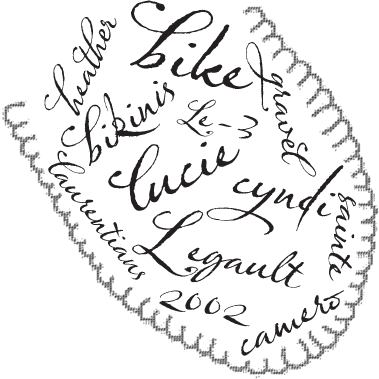 heather
bike
gravel
bikinis
Le
lucie
cyndi
sainte
laurentians
Legault
2002
camero